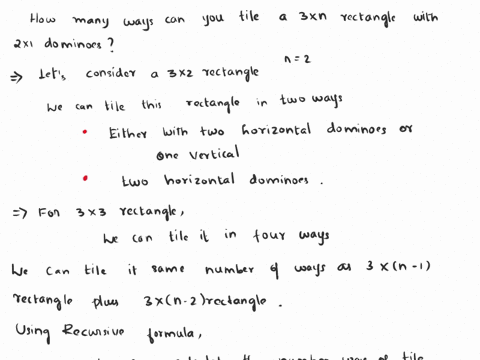 How many ways can you tile a 3×n rectangle with
2×1 dominoes?
n=2
=> Let's consider a 3×2 rectangle
We can tile this rectangle in two ways
• Either with two horizontal dominoes or
one vertical
• two horizontal dominoes.
=> For 3×3 rectangle,
We can tile it in four ways
We can tile it same number of ways as 3×(n-1)
rectangle plus 3×(n-2) rectangle.
Using Recursive formula,